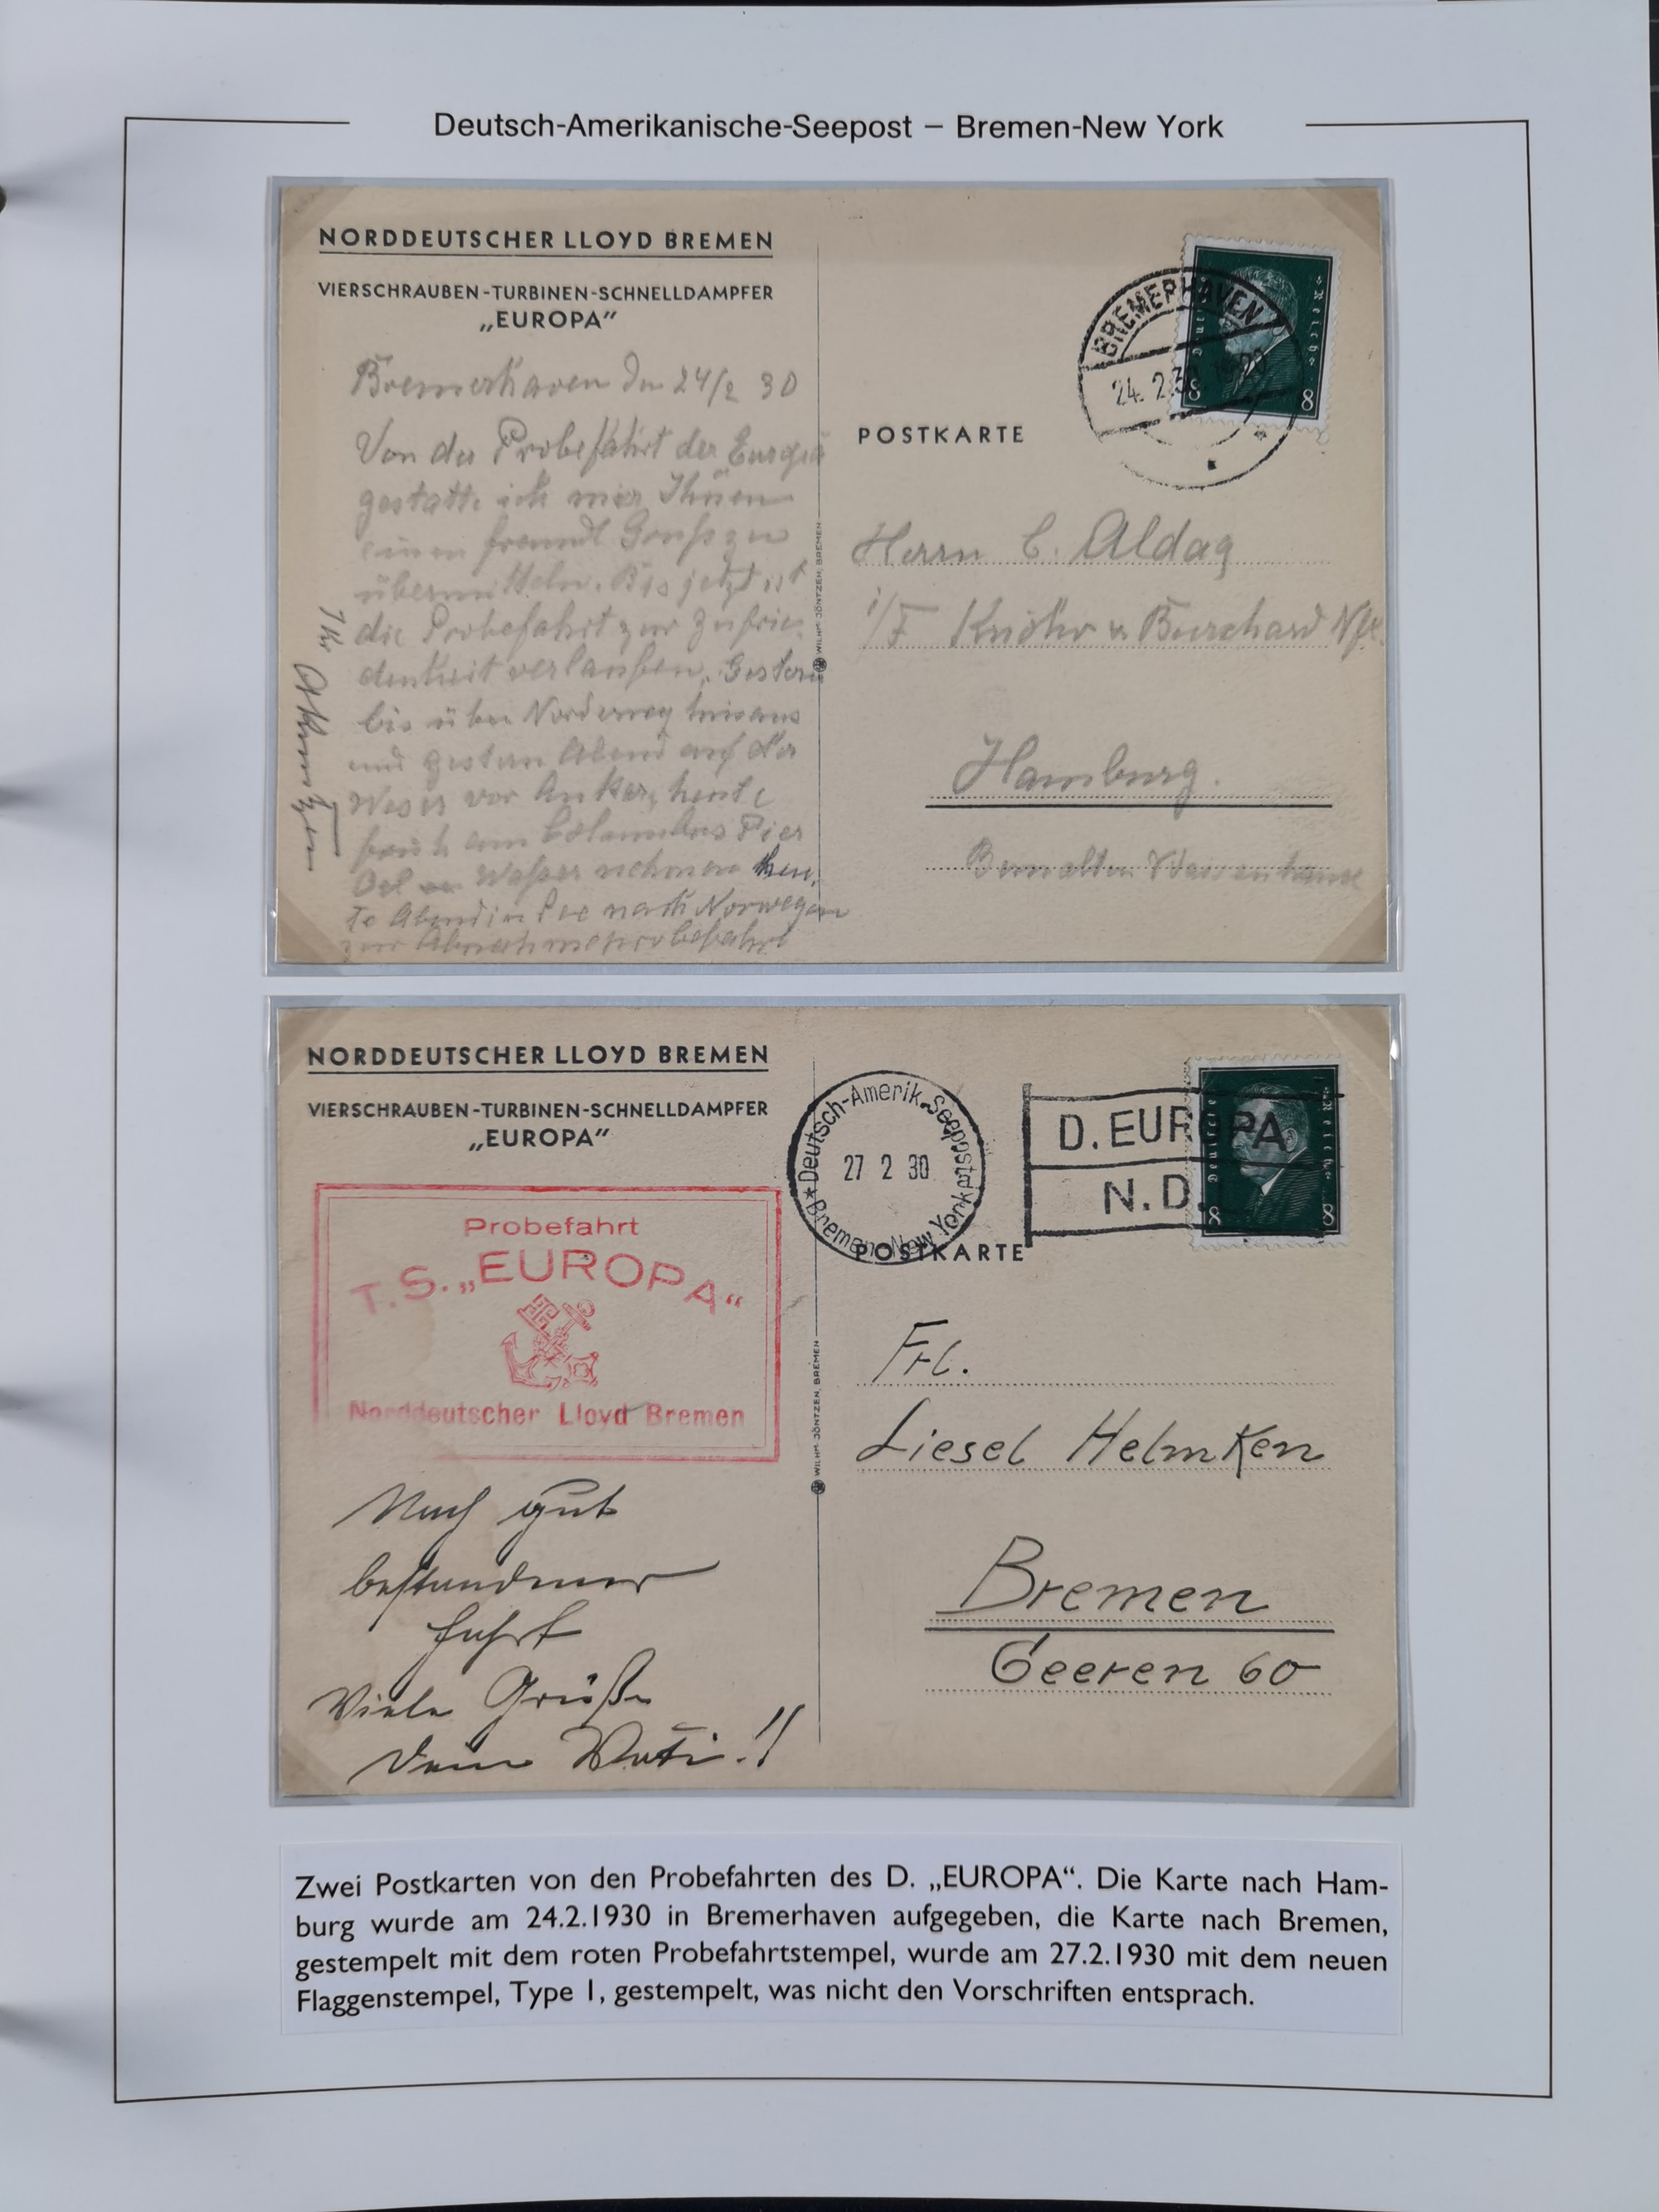 Deutsch-Amerikanische-Seepost – Bremen-New York
NORDDEUTSCHER LLOYD BREMEN
VIERSCHRAUBEN-TURBINEN-SCHNELLDAMPFER
„EUROPA”
Bremerhaven den 24/2 30
Von der Probefahrt der Europa
gestatte ich mir Ihnen
einen freundl Gruss zu
übermitteln. Bis jetzt ist
die Probefahrt zur Zufrie-
denheit verlaufen, Gestern
bis über Norderney hinaus
und gestern Abend auf der
Weser vor Anker, heute
früh am Columbus Pier
Oel Wasser nehmen heu-
te Abend in See nach Norwegen
zur Abnahmeprobefahrt
Ihr
WILHM JÖNTZEN, BREMEN
POSTKARTE
BREMERHAVEN
24. 2.30
Deutsches Reich
8 8
Herrn C. Aldag
i/F Knöhr u Burchard Nfl.
Hamburg.
Beim alten Waisenhause
NORDDEUTSCHER LLOYD BREMEN
VIERSCHRAUBEN-TURBINEN-SCHNELLDAMPFER
„EUROPA”
Probefahrt
T.S. „EUROPA“
Norddeutscher Lloyd Bremen
Nach gut
bestandener
Fahrt
Viele Grüße
Dein
WILHM JÖNTZEN, BREMEN
Deutsch-Amerik. Seepost
27 2 30
Bremen-New York
D. EUROPA
N.D.
Deutsches Reich
8 8
POSTKARTE
Frl.
Liesel Helmken
Bremen
Geeren 60
Zwei Postkarten von den Probefahrten des D. „EUROPA“. Die Karte nach Ham-
burg wurde am 24.2.1930 in Bremerhaven aufgegeben, die Karte nach Bremen,
gestempelt mit dem roten Probefahrtstempel, wurde am 27.2.1930 mit dem neuen
Flaggenstempel, Type 1, gestempelt, was nicht den Vorschriften entsprach.